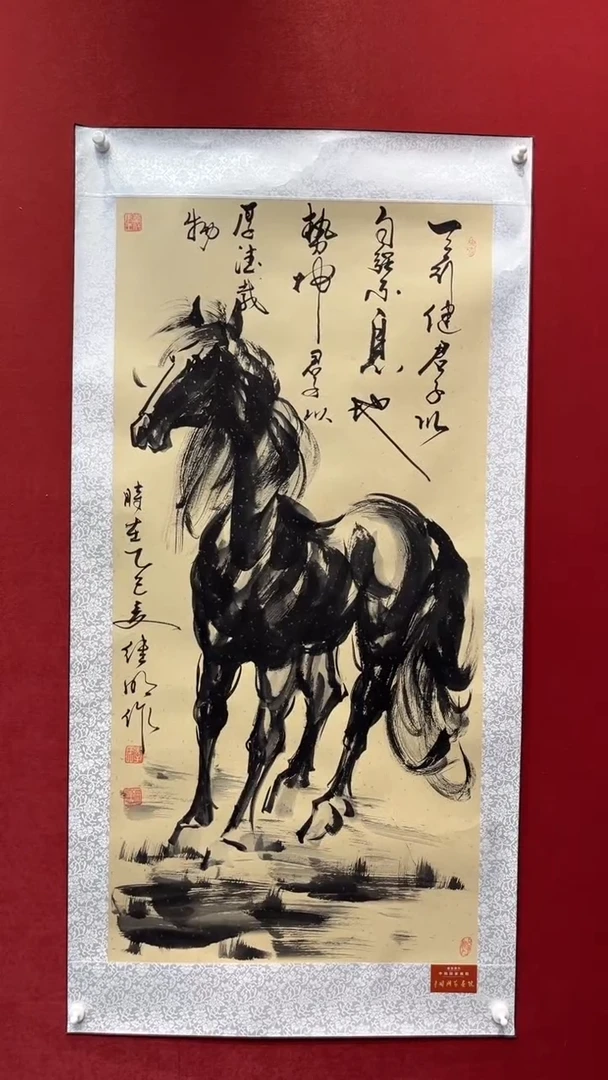 天行健君子以
自強不息地
勢坤君子以
厚德載
物
時在乙巳夏健明作